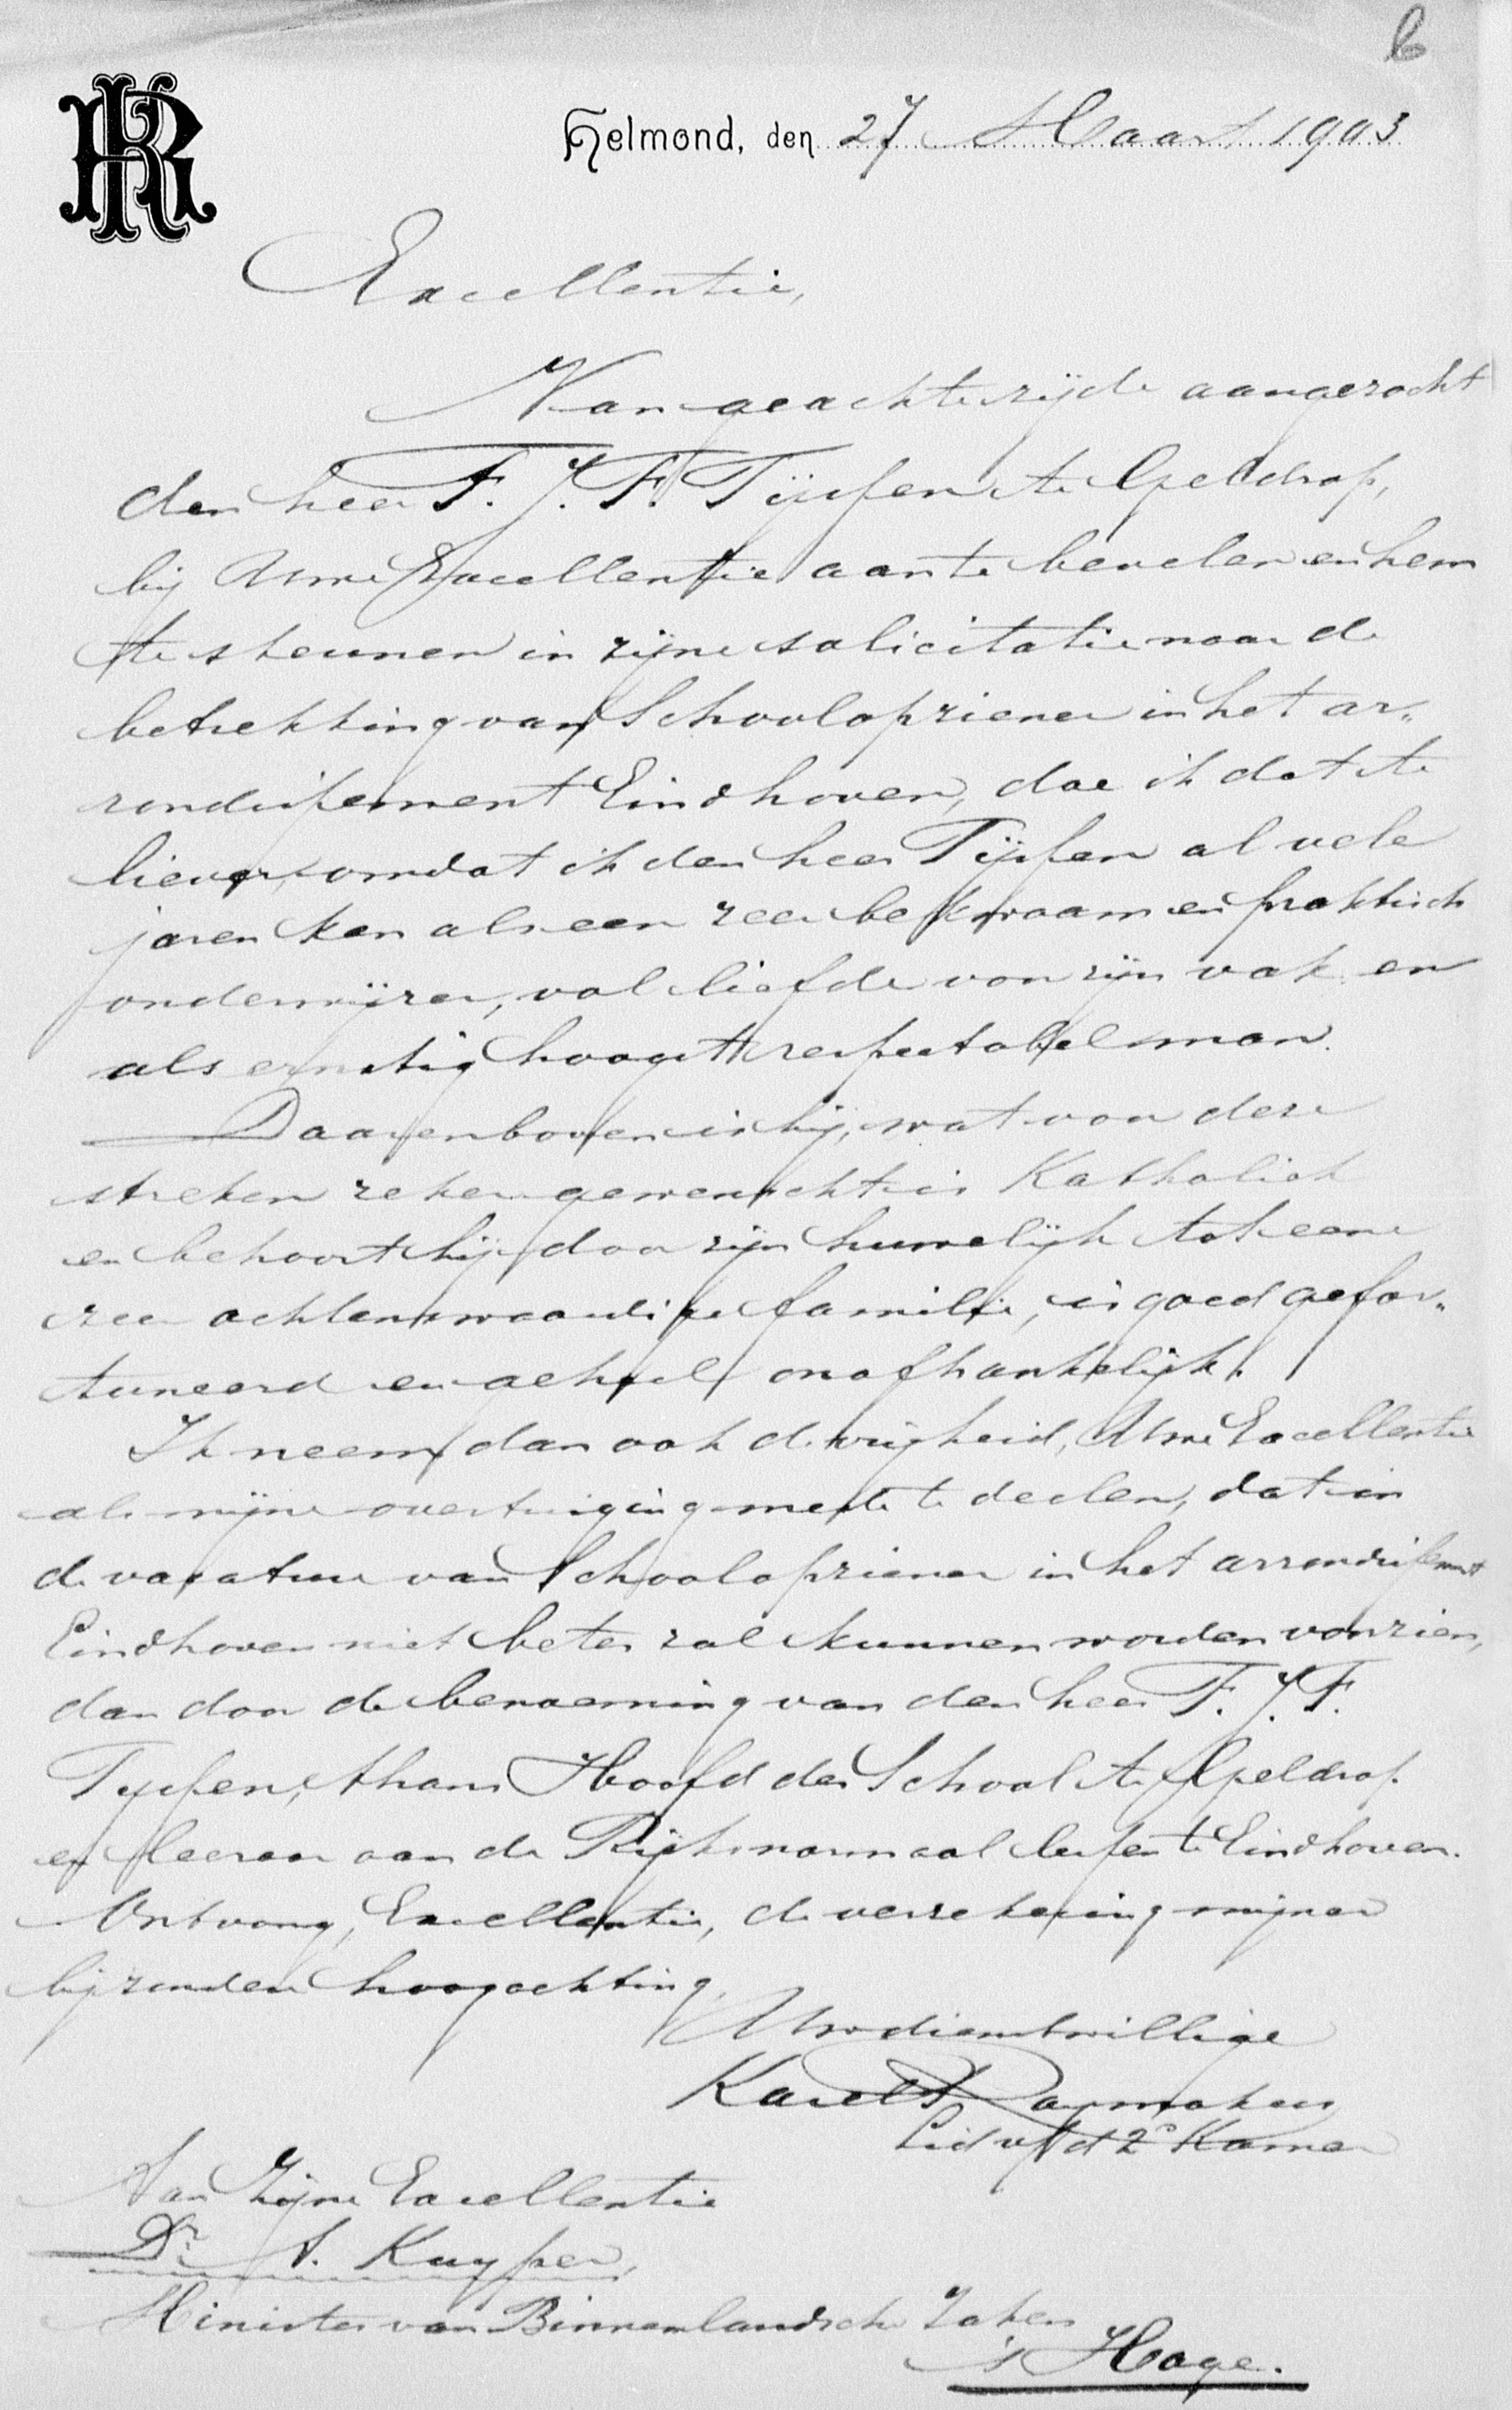 6
KR
Helmond, den 27 Maart 1903
Excellentie,
Van geachte zijde aangezocht
den heer F. J. F. Tijssen te Geldrop,
bij Uwe Excellentie aan te bevelen en hem
te steunen in zijne solicitatie naar de
betrekking van Schoolopziener in het ar„
rondissement Eindhoven, doe ik dat te
liever, omdat ik den heer Tijssen al vele
jaren ken als een zeer bekwaam en praktisch
onderwijzer, vol liefde voor zijn vak en
als ernstig hoogst respectabel man.
Daarenboven is hij, wat voor deze
streken zeker gewenscht is Katholiek
en behoort hij door zijn huwelijk tot eene
zeer achtenswaardige familie, is goed gefor„
tuneerd en geheel onafhankelijk.
Ik neem dan ook de vrijheid, Uwe Excellentie
als mijne overtuiging mede te deelen, dat in
de vacature van Schoolopziener in het arrondissement
Eindhoven niet beter zal kunnen worden voorzien,
dan door de benoeming van den heer F. J. F.
Tijssen, thans Hoofd der School te Geldrop
en leeraar aan de Rijksnormaal lessen te Eindhoven.
Ontvang, Excellentie, de verzekering mijner
bijzondere hoogachting.
Uwdienstwillige
Karel Raymakers
Lid v/d 2e Kamer
Aan Zijne Excellentie
Dr. A. Kuyper,
Minister van Binnenlandsche Zaken
's Hage.